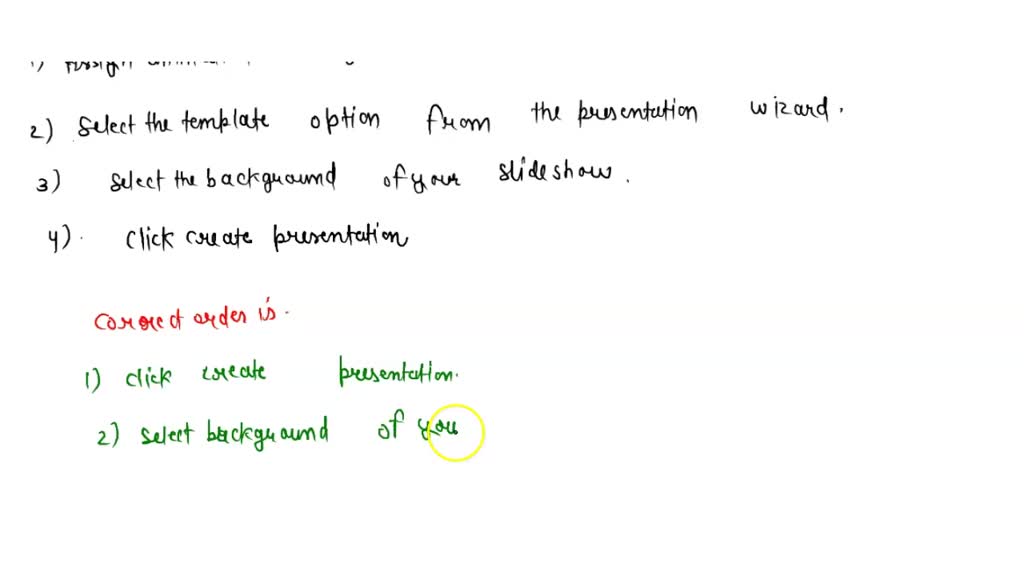 2) Select the template option from the presentation wizard.
3) select the background of your slideshow.
4). click create presentation
correct order is.
1) click create presentation.
2) select background of you